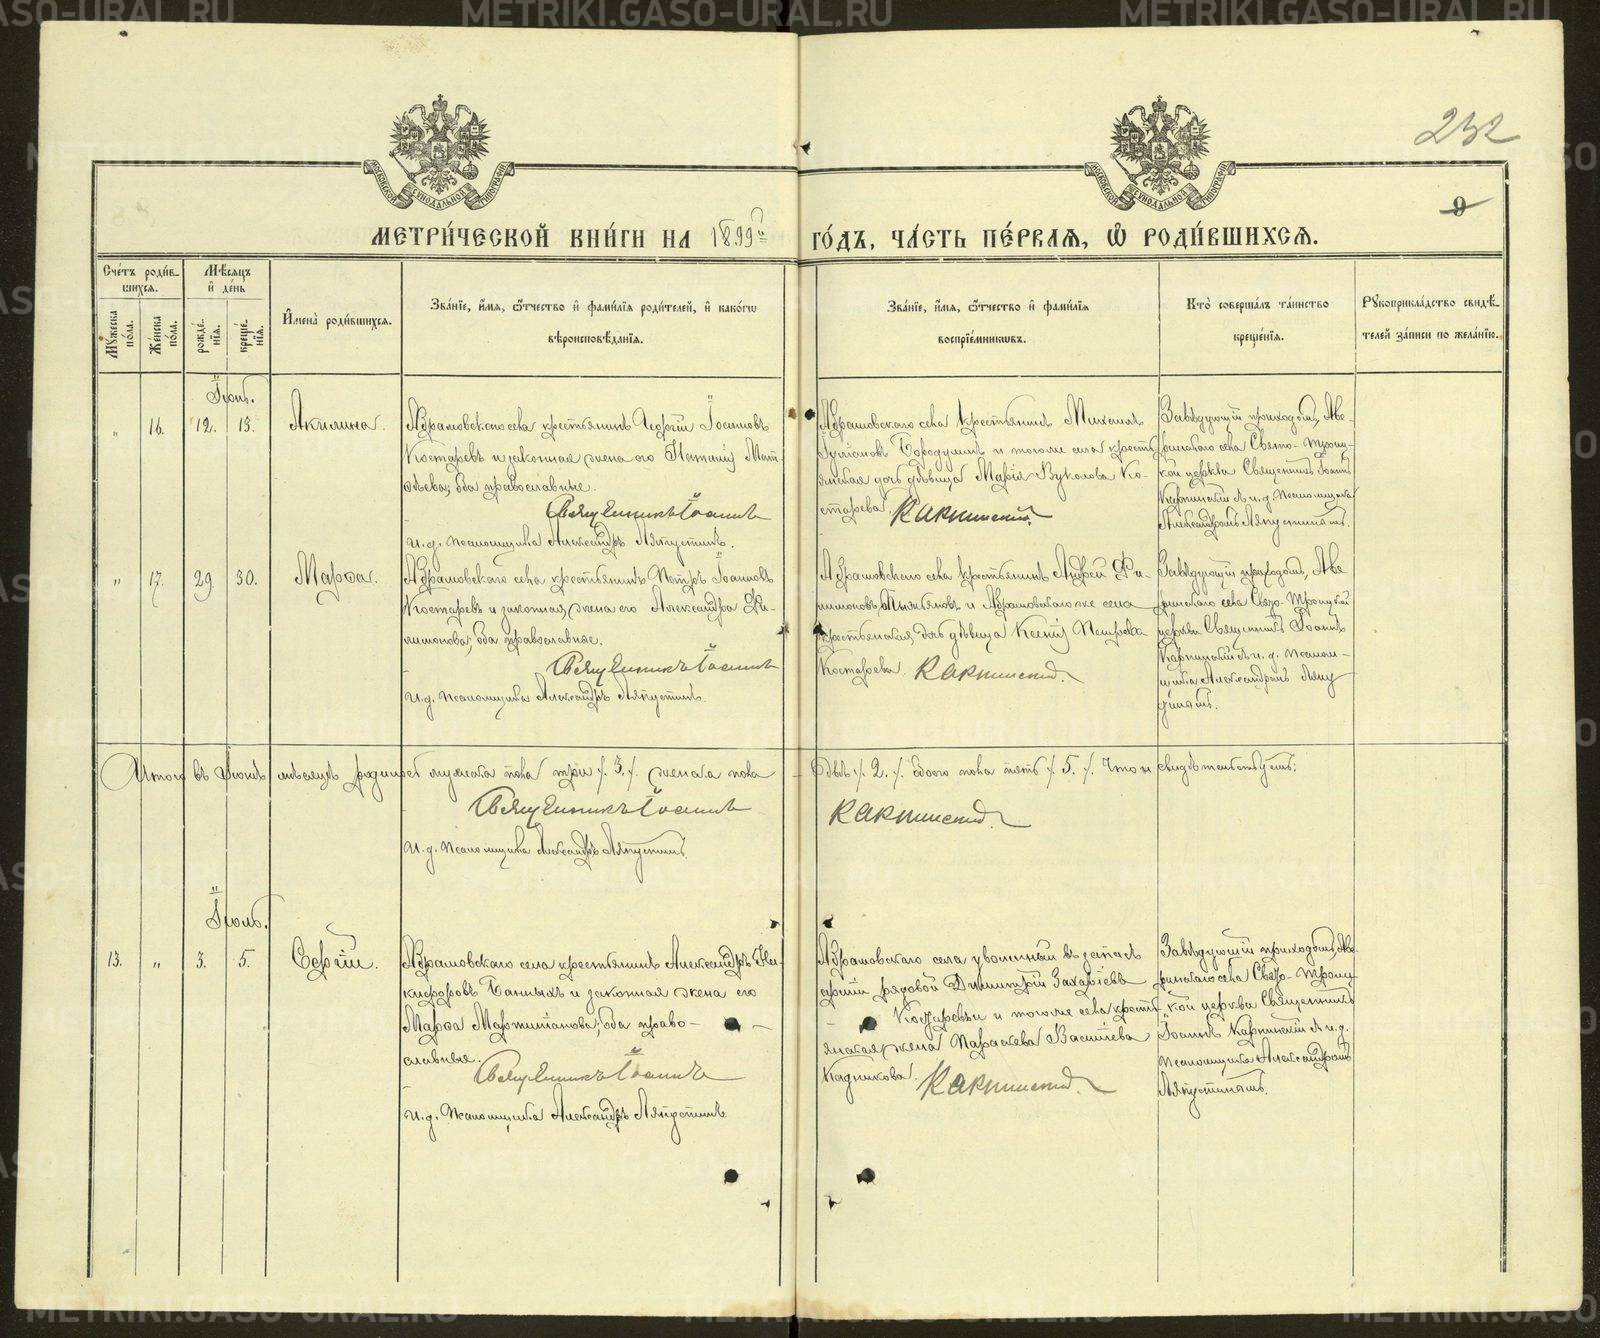 232
9
МЕТРИ́ЧЕСКОЙ КНИ́ГИ НА 1899й ГО́ДЪ, ЧА́СТЬ ПЕ́РВАѦ, Ѡ҆ РОДИ́ВШИХСѦ.
Сче́тъ роди́в-
шихсѧ.
Мꙋ́жеска по́ла.
Же́нска по́ла.
Мѣ́сѧцъ и҆ де́нь
рожде́-нїѧ.
креще́-нїѧ.
И҆мена̀ роди́вшихсѧ.
Зва́нїе, и҆́мѧ, ѻ҆́тчество и҆ фами́лїѧ роди́телей, и҆ како́гѡ
вѣроисповѣ́данїѧ.
Зва́нїе, и҆́мѧ, ѻ҆́тчество и҆ фами́лїѧ
воспрїе́мникѡвъ.
Кто̀ соверша́лъ та́инство
креще́нїѧ.
Рꙋкоприкла́дство свидѣ́-
телей за́писи по жела́нїю.
Іюнь.
„ 16. 12. 13. Акилина.
Абрамовскаго села крестьянинъ Георгій Іосифовъ
Костаревъ и законная жена его Наталія Мат-
ѳѣева; оба православные.
Священникъ Іоаннъ
И. д. псаломщика Александръ Ляпустинъ.
Абрамовскаго села крестьянинъ Михаилъ
Бородулинъ и того же села кресть-
янская дочь дѣвица Марія Вуколова Ко-
старева. Карпинскій.
Завѣдующій приходомъ, Аве-
ринскаго села Свято-Троиц-
кой церкви Священникъ Іоаннъ
Карпинскій съ и. д. псаломщика
Александромъ Ляпустинымъ.
„ 17. 29. 30. Марѳа.
Абрамовскаго села крестьянинъ Петръ Іоанновъ
Костаревъ и законная жена его Александра Фи-
лимонова; оба православные.
Священникъ Іоаннъ
И. д. псаломщика Александръ Ляпустинъ.
Абрамовскаго села крестьянинъ Андрей Фи-
лимоновъ и Абрамовскаго же села
крестьянская дочь дѣвица Ксенія Петрова
Костарева. Карпинскій.
Завѣдующій приходомъ, Аве-
ринскаго села Свято-Троицкой
церкви Священникъ Іоаннъ
Карпинскій съ и. д. псалом-
щика Александромъ Ляпу-
стинымъ.
Итого въ Іюнѣ мѣсяцѣ родилось мужска пола три /. 3. /. женска пола двѣ /. 2. /. обоего пола пять /. 5. /. Что и свидѣтельствуемъ:
Священникъ Іоаннъ Карпинскій.
И. д. псаломщика Александръ Ляпустинъ.
Іюль.
13. „ 3. 5. Сергій.
Абрамовскаго села крестьянинъ Александръ Ни-
кифоровъ Банныхъ и законная жена его
Марѳа Мартиніанова; оба право-
славные.
Священникъ Іоаннъ
И. д. псаломщика Александръ Ляпустинъ
Абрамовскаго села уволенный въ запасъ
арміи рядовой Димитрій Захаріевъ
Костаревъ и того же села кресть-
янская жена Параскева Васильева
Кадникова. Карпинскій.
Завѣдующій приходомъ, Аве-
ринскаго села Свято-Троиц-
кой церкви Священникъ
Іоаннъ Карпинскій съ и. д.
псаломщика Александромъ
Ляпустинымъ.
METRIKI.GASO-URAL.RU